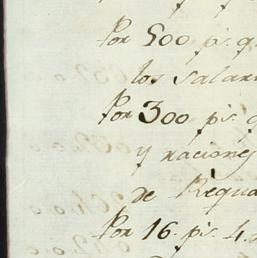 Por 500 ps. q
los Salari
Por 300 ps. q
y raciones
de Requa
Por 16. ps. 4.